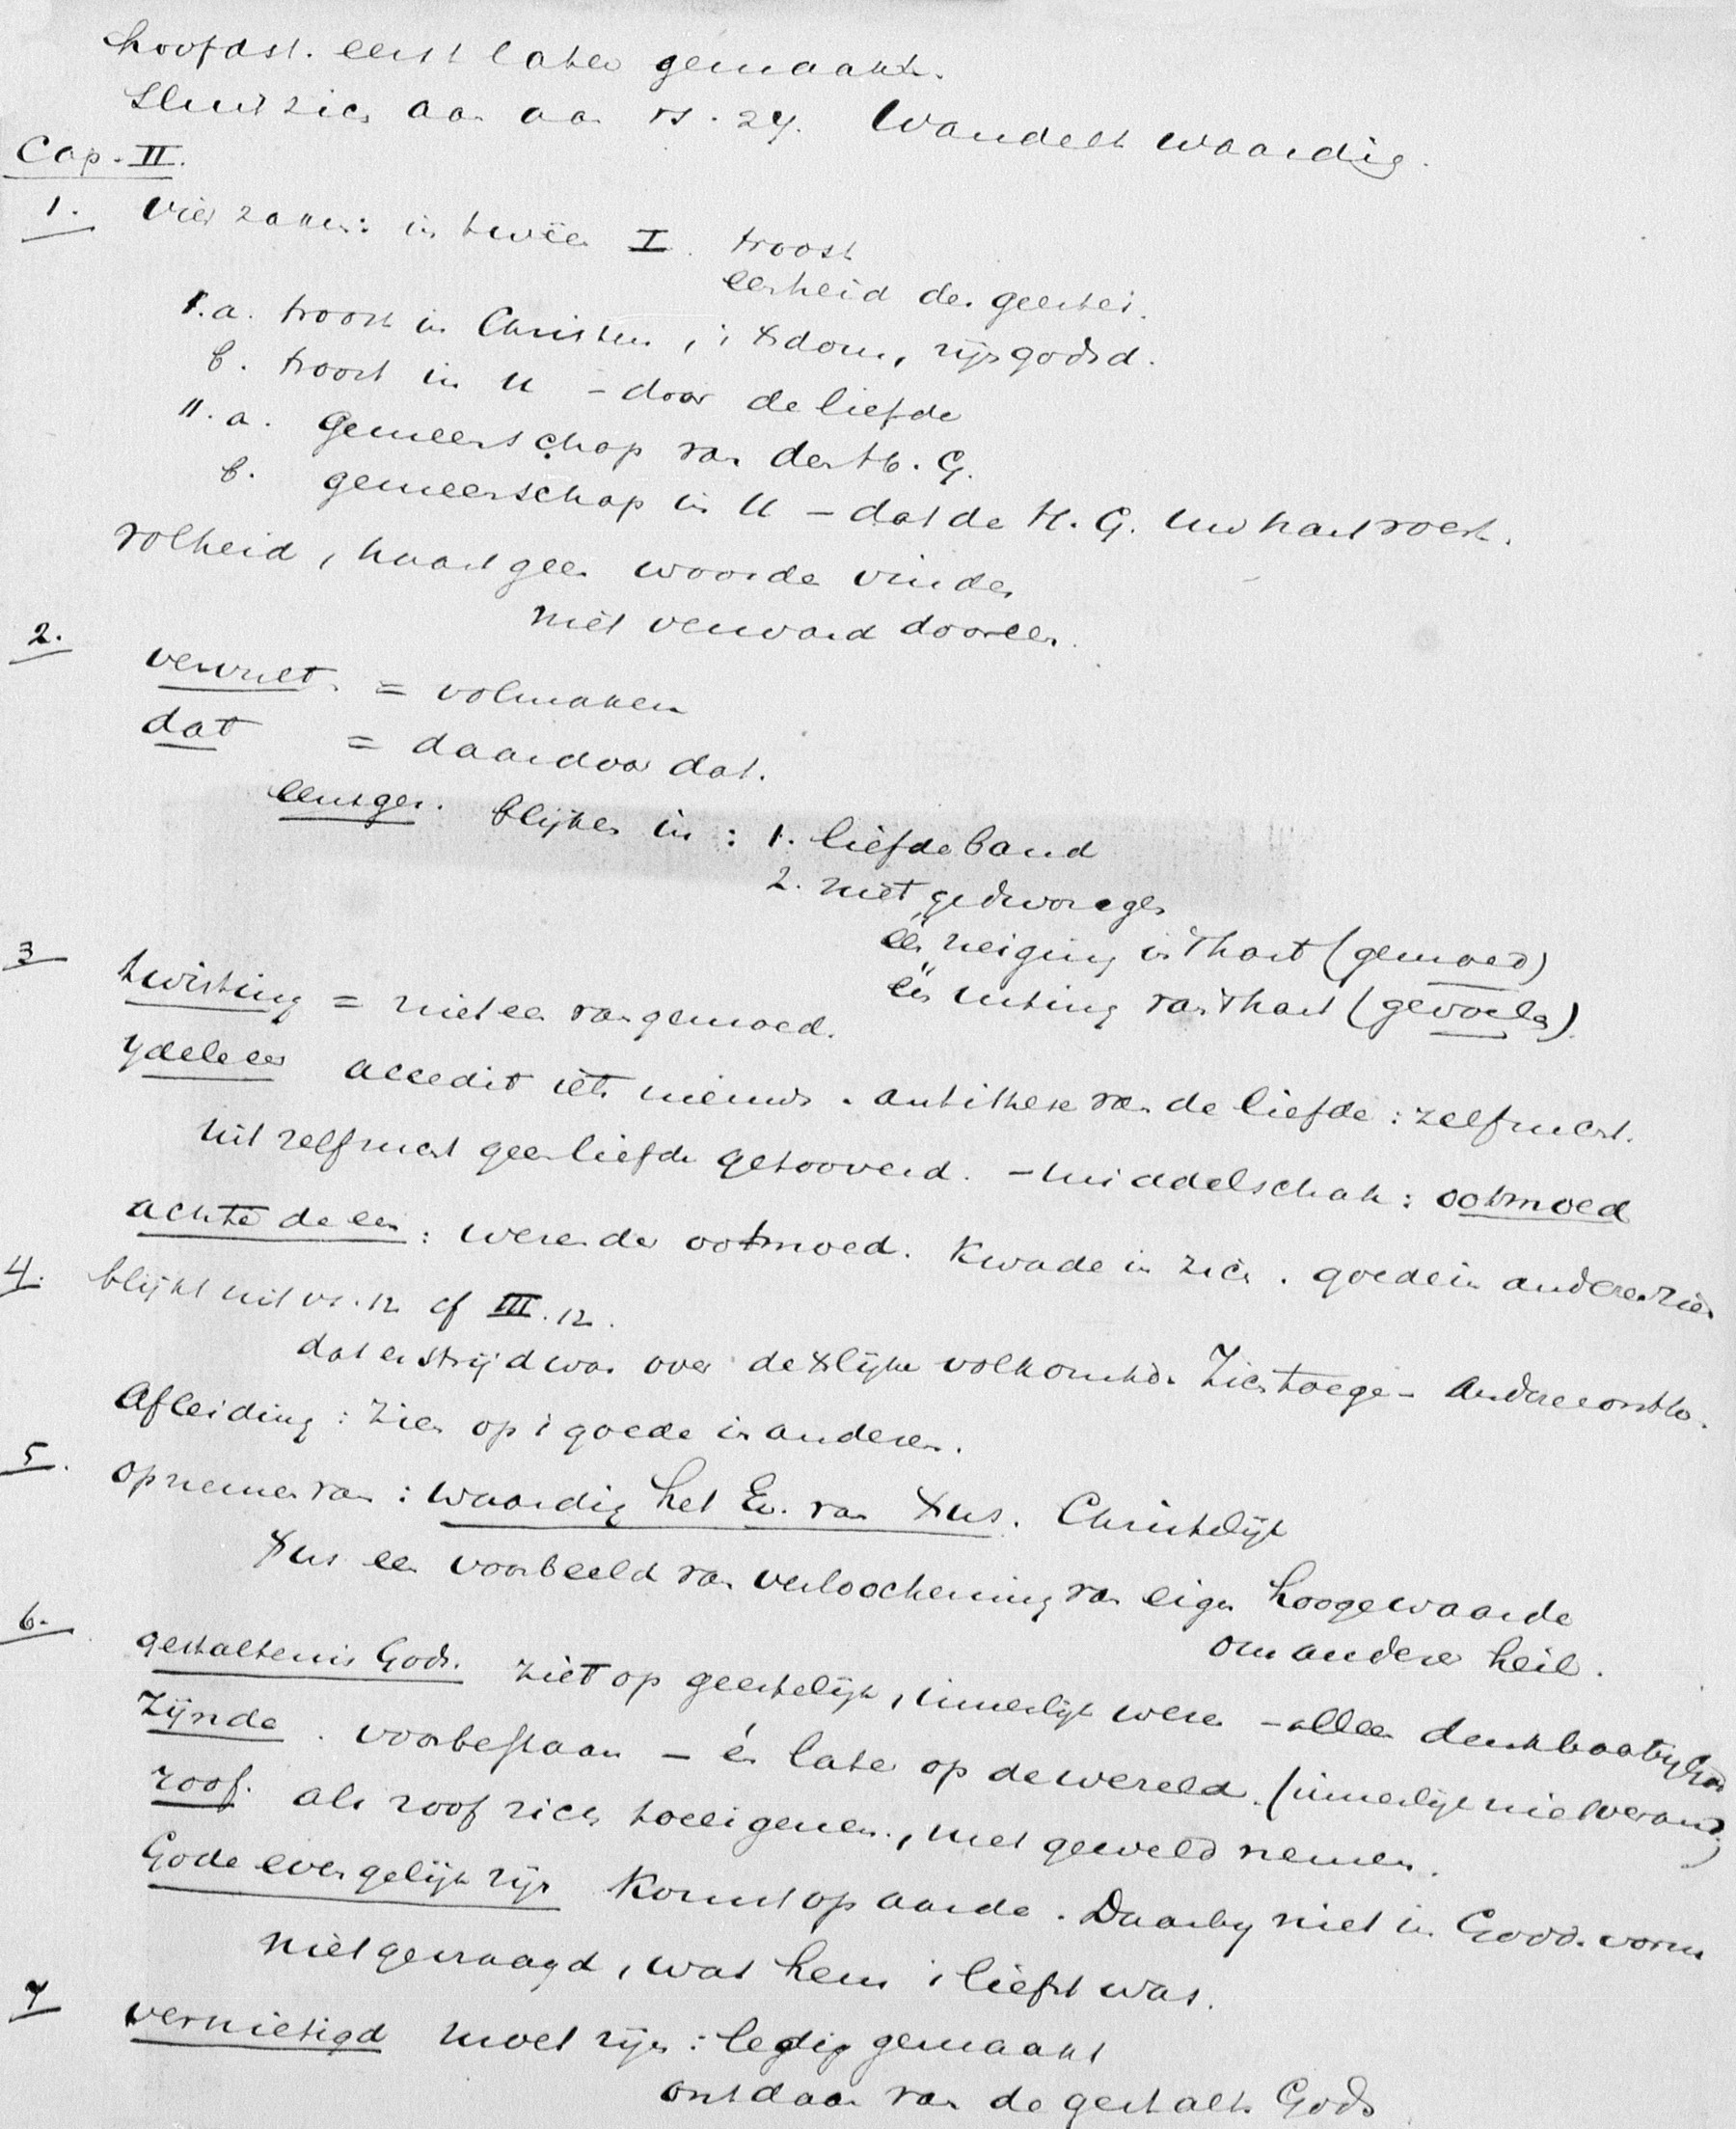 hoofdst. eerst later gemaakt.
Sluit zich aan aan vs. 27. Wandelt waardig.
Cap. II.
1. Vier zaken: in tweeën I. troost
eenheid des geestes.
I.a. troost in Christus, 't Xdom, zijn godsd.
b. troost in U – door de liefde
II.a. gemeenschap van den H. G.
b. gemeenschap in U – dat de H. G. Uw hart voert.
volheid, haast geen woorden vinden
niet verward dooreen.
2. vervult. = volmaken
dat = daardoor dat.
eensgez. blijken in : 1. liefdeband
2. niet gedwongen
één neiging in 't hart (gemoed)
één uiting van 't hart (gevoelen).
3 twisting = niet een van gemoed.
ydele eer accedit iets nieuws. antithese van de liefde : zelfzucht.
Uit zelfzucht geen liefde getooverd. – middelschak : ootmoed
achte de een : werende ootmoed. Kwade in zich. goede in anderen zien
4. blijkt uit vs. 12 cf III. 12.
dat er strijd was over de Xlijke volkomenh. Zich toege- anderen onth.
Afleiding : zien op 't goede in anderen.
5. opnemen van : waardig het Ev. van Xus. Christelijk
Xus een voorbeeld van verloochening van eigen hooge waarde
om anderer heil.
6. gestaltenis Gods. ziet op geestelijk, innerlijk wezen – alleen denkbaar bij God
Zijnde. voorbestaan – én later op de wereld. (innerlijk niet verand.)
roof. als roof zich toeeigenen, met geweld nemen.
Gode evengelijk zijn Komst op aarde. Daarby niet in Godd. vorm
niet gevraagd, wat hem 't liefst was.
7 vernietigd moet zijn : ledig gemaakt
ontdaan van de gestalte Gods